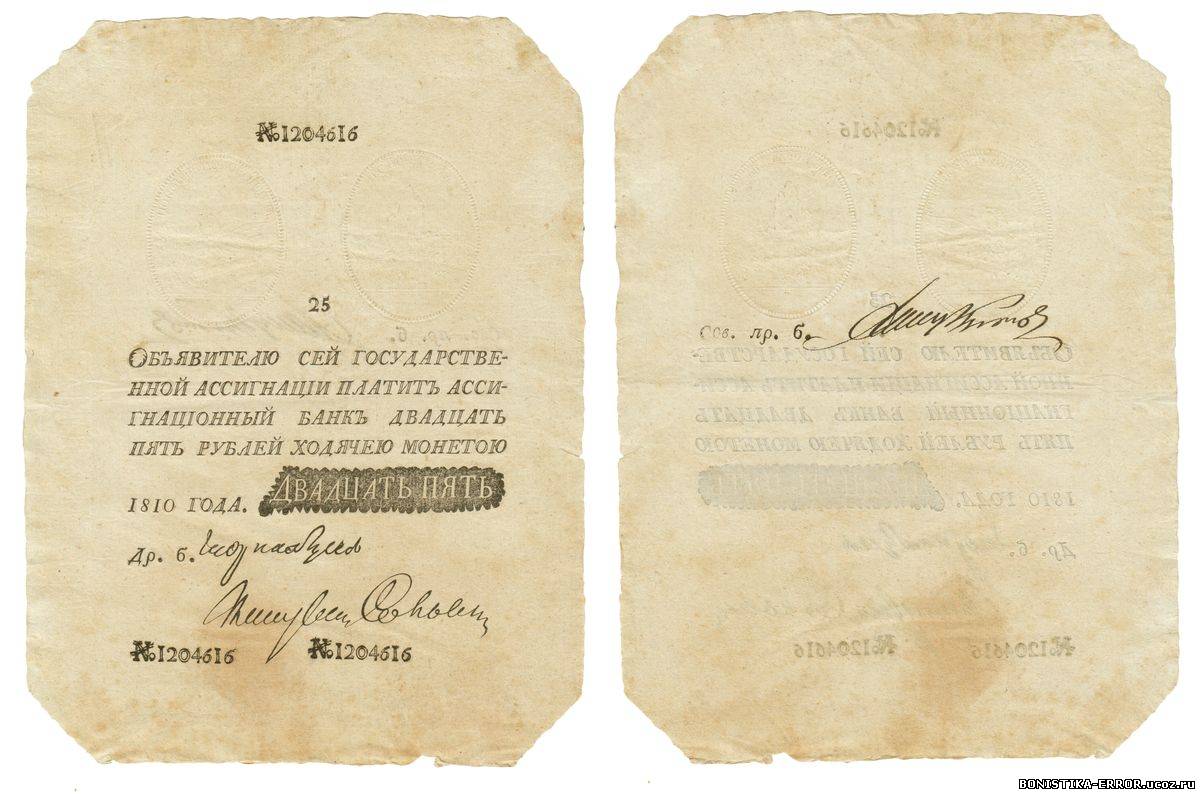 №1204616
25
ОБЪЯВИТЕЛЮ СЕЙ ГОСУДАРСТВЕ-
ННОЙ АССИГНАЦІИ ПЛАТИТЪ АССИ-
ГНАЦІОННЫЙ БАНКЪ ДВАДЦАТЬ
ПЯТЬ РУБЛЕЙ ХОДЯЧЕЮ МОНЕТОЮ
1810 ГОДА. ДВАДЦАТЬ ПЯТЬ
др. б.
№1204616 №1204616
Сов. пр. б.
BONISTIKA-ERROR.ucoz.ru